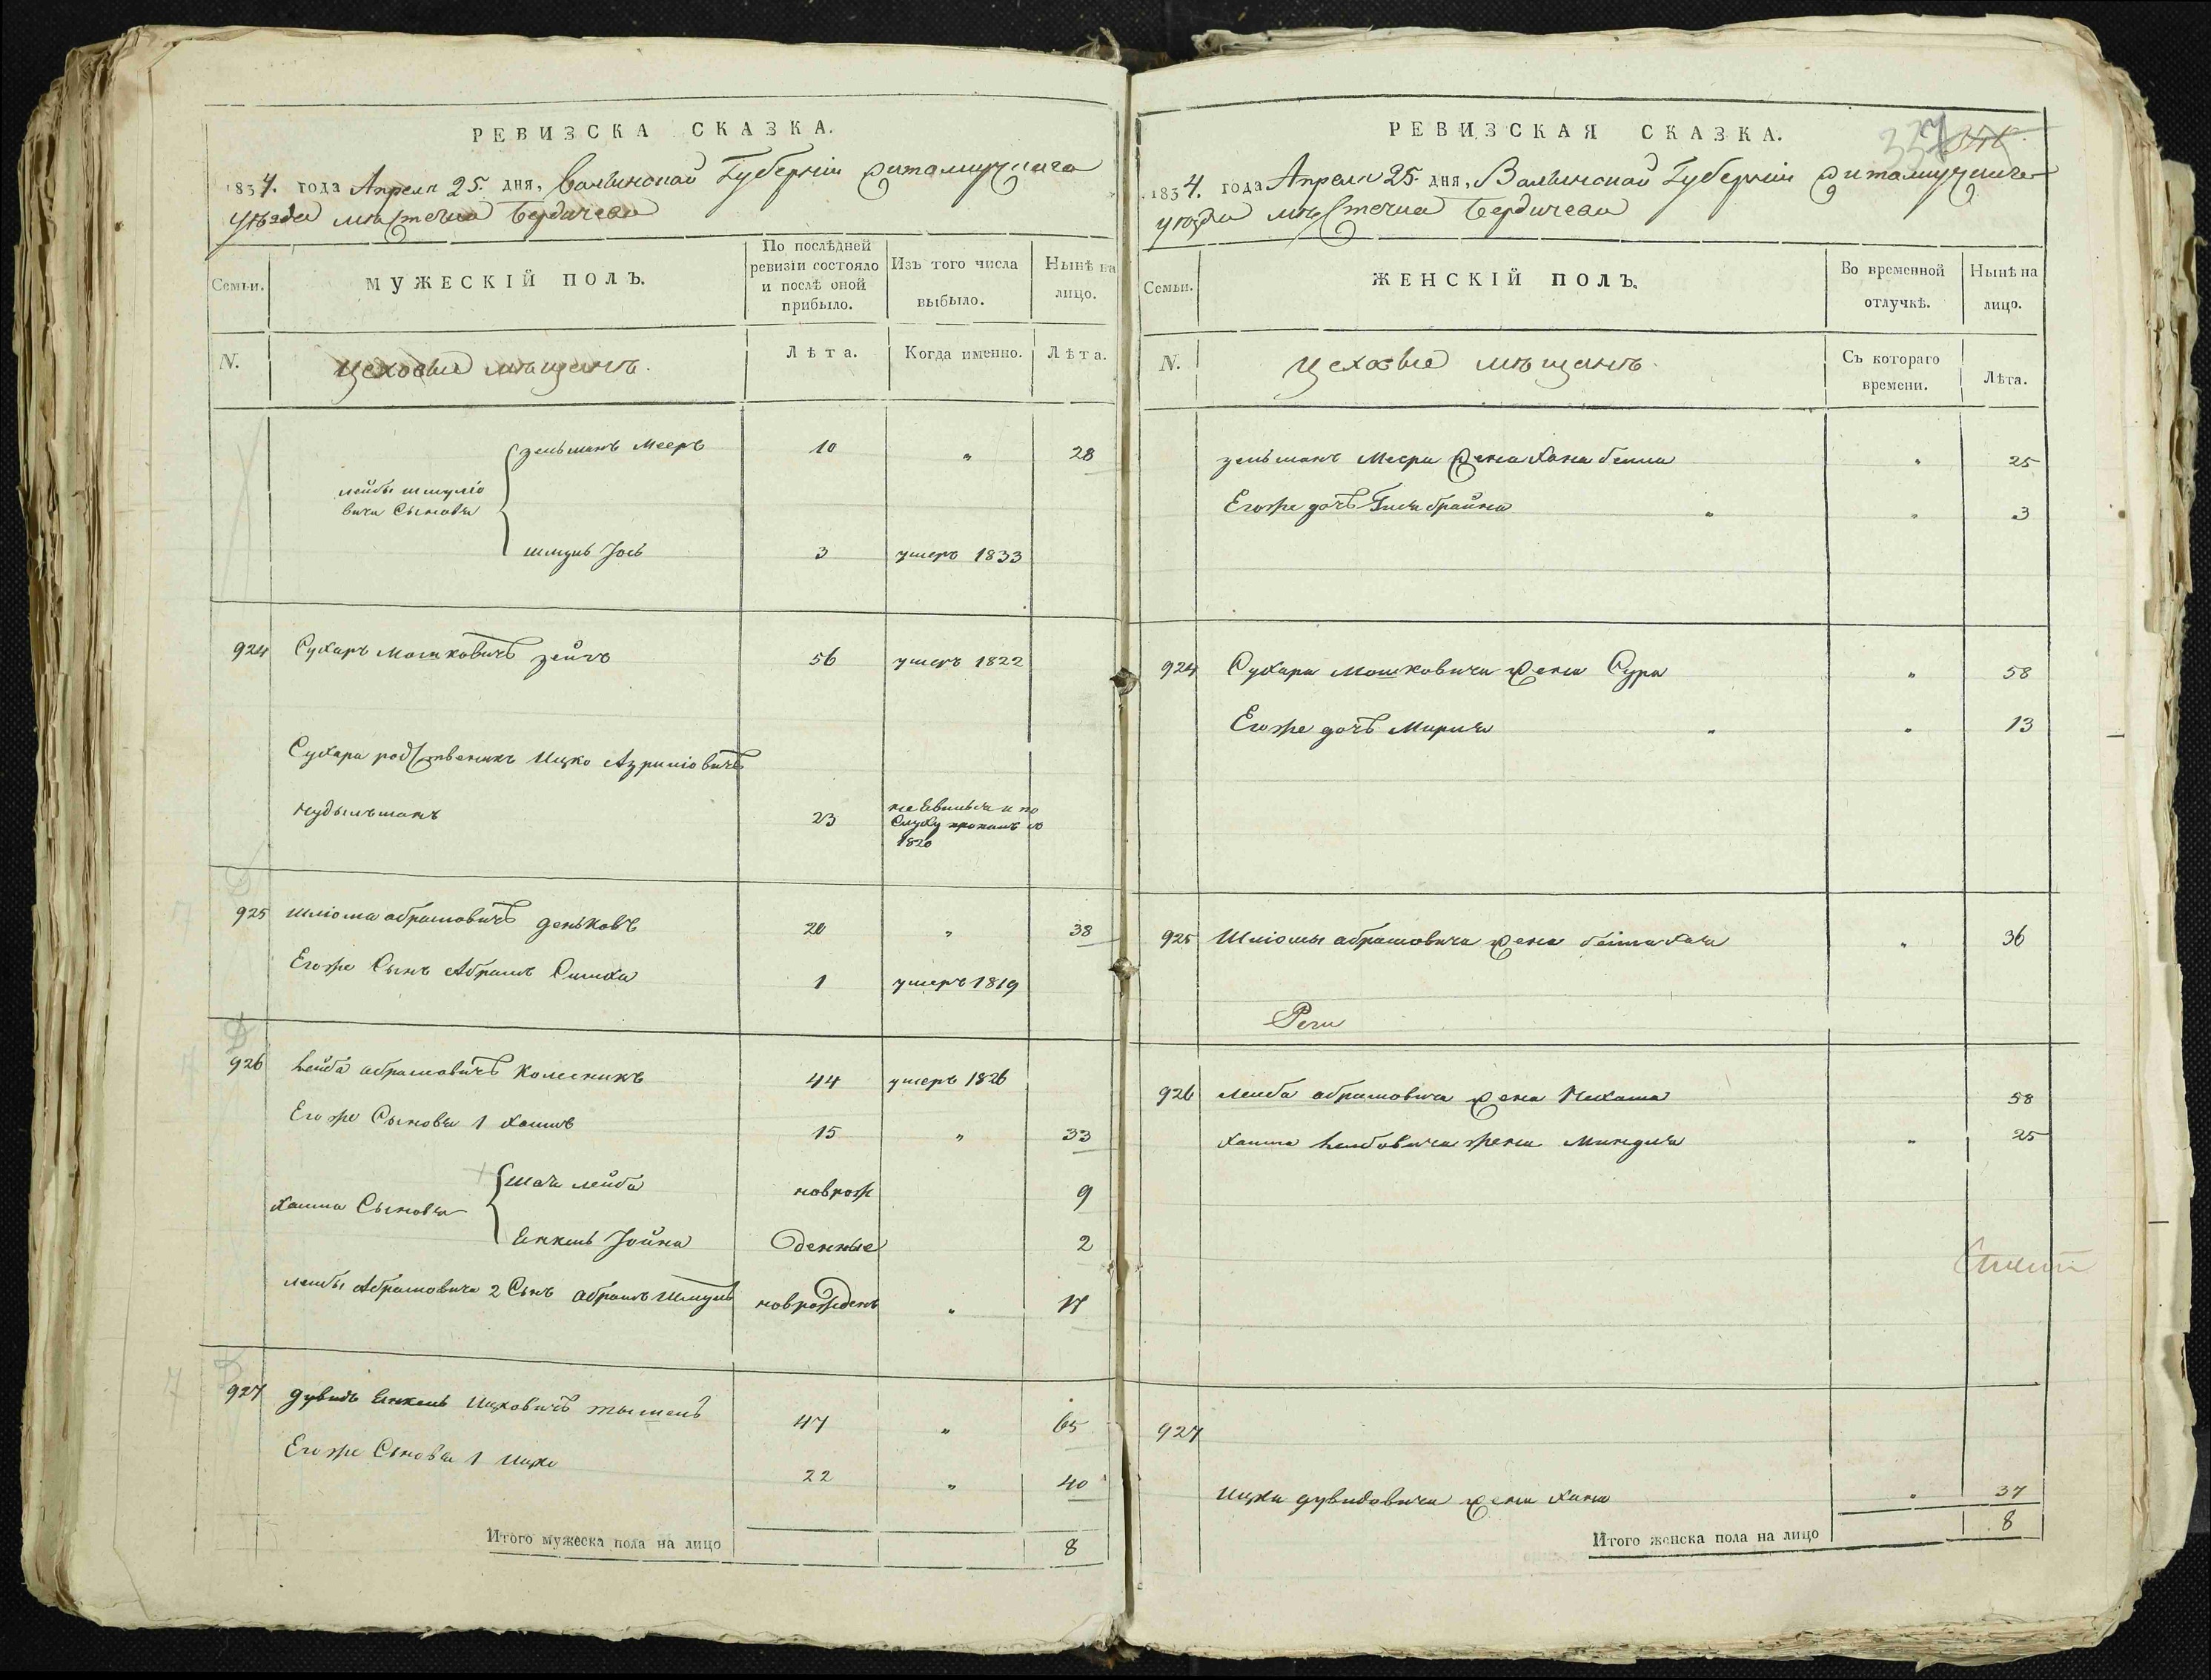 РЕВИЗСКА СКАЗКА.
1834. года Апреля 25. дня, Волынской Губернии Житомирскаго
уѣзда мѣстечка Бердичева
Семьи.
МУЖЕСКІЙ ПОЛЪ.
По послѣдней ревизіи состояло и послѣ оной прибыло.
Изъ того числа выбыло.
Нынѣ на лицо.
N.
Цеховые мѣщанъ.
Лѣта.
Когда именно.
Лѣта.
Лейбы Шмуліо
вича Сыновья
Зельманъ Мееръ 10 " 28
Шмуль Іось 3 умеръ 1833
924 Сухаръ Мошковичъ 56 умеръ 1822
Сухара родственикъ Ицко Азриліовичъ
Нудыльманъ 23
1820
925 Шліома абрамовичъ деньковъ 20 " 38
Егоже Сынъ Абрамъ Симха 1 умеръ 1819
926 Лейба абрамовичъ Колесникъ 44 умеръ 1826
Егоже Сыновья 1 Хаимъ 15 " 33
Хаима Сыновья
Лейба новрож 9
Енкель Іойна денные 2
Лейбы Абрамовича 2 Сынъ Абрамъ Шмуль новрожденъ " 17
927 Дувидъ Енкель Ицковичъ 47 " 65
Егоже Сыновья 1 Ицко 22 " 40
Итого мужеска пола на лицо 8
РЕВИЗСКАЯ СКАЗКА.
337
1834. года Апреля 25. дня, Волынской Губерніи Житомирскаго
уѣзда мѣстечка Бердичева
Семьи.
ЖЕНСКІЙ ПОЛЪ.
Во временной отлучкѣ.
Нынѣ на лицо.
N.
Цеховые мѣщанъ.
Съ котораго времени.
Лѣта.
Зельманъ Меера жена Хана бейла " 25
Егоже дочь брайна " " 3
924 Сухара Мошковича жена Сура " 58
Егоже дочь Мирича " " 13
925 Шліомы абрамовича жена " 36
926 Лейба абрамовича жена Нехама 58
Хаима Лейбовича жена Миндля " 25
927
Ицка дувидовича жена Хана " 37
Итого женска пола на лицо 8